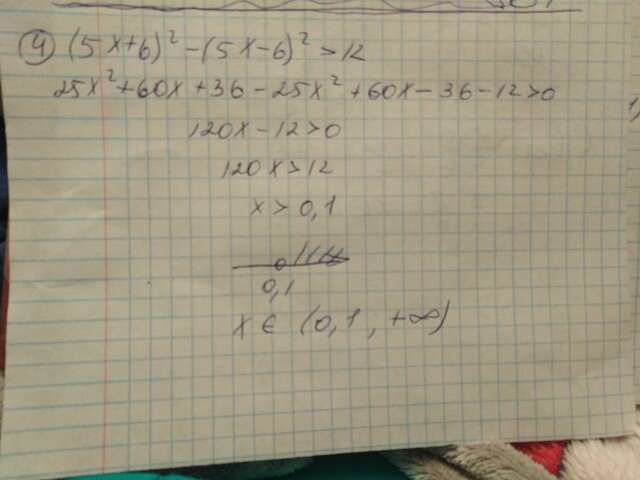 4 (5x+6)² -(5x-6)² >12
25x²+60x+36-25x²+60x-36-12>0
120x-12>0
120x>12
x> 0,1
0,1
x∈ (0,1, +∞)